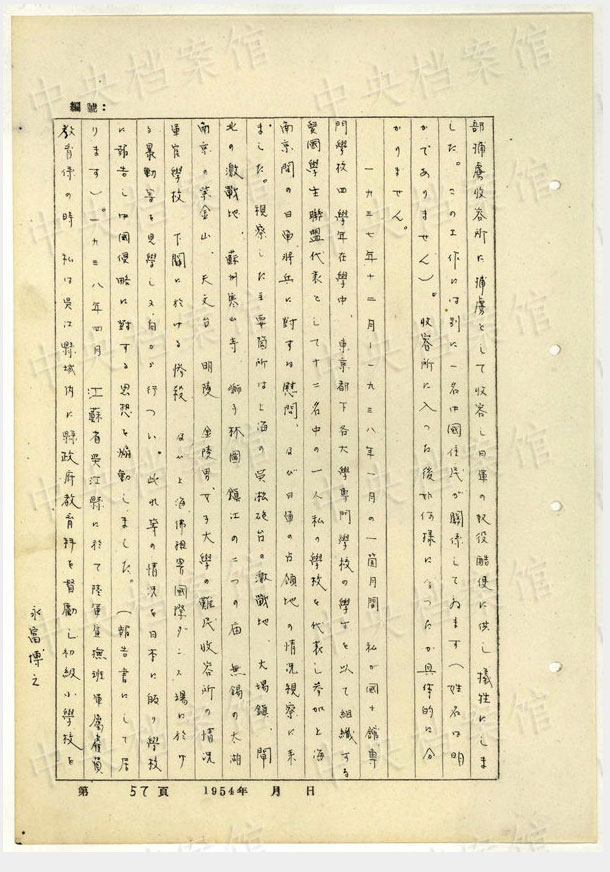 編號:
部捕虜收容所に捕虜として收容し日軍の奴役酷使に供し犠牲にしま
した。この工作には別に一名中國住民が關係してゐます(姓名は明
かでありません)。收容所に入った後如何様になったか具体的に分
かりません。
一九三七年十二月-一九三八年一月の一箇月間 私が國士館專
門學校四學年在學中、東京都下各大學專門學校の學生を以て組織する
愛國學生聯盟代表として十二名中の一人私の學校を代表し参加上海
南京間の日軍將兵に対する慰問、及び日軍の占領地の情況視察に来
ました。視察した主要箇所は上海の吳淞砲台の激戰地、大場鎮、閘
北の激戰地、蘇州寒山寺 獅子林園 鎮江の二つの廟 無錫の太湖
南京の紫金山、天文台 明陵 金陵男女子大學の難民收容所の情況
軍官學校 下關に於ける惨殺 及び上海佛租界國際ダンス場に於け
る暴動害を見學し又自から行つい。此れ等の情況を日本に歸り學校
に報告し中國侵略に對する思想を煽動しました。(報告書にして居
ります)。一九三八年四月 江蘇省吳江縣に於て陸軍宣撫班軍屬雇員
教育係の時 私は吳江縣城内に縣政府教育科を督勵し初級小學校を
永富博之
第 57頁 1954年 月 日
中央档案馆